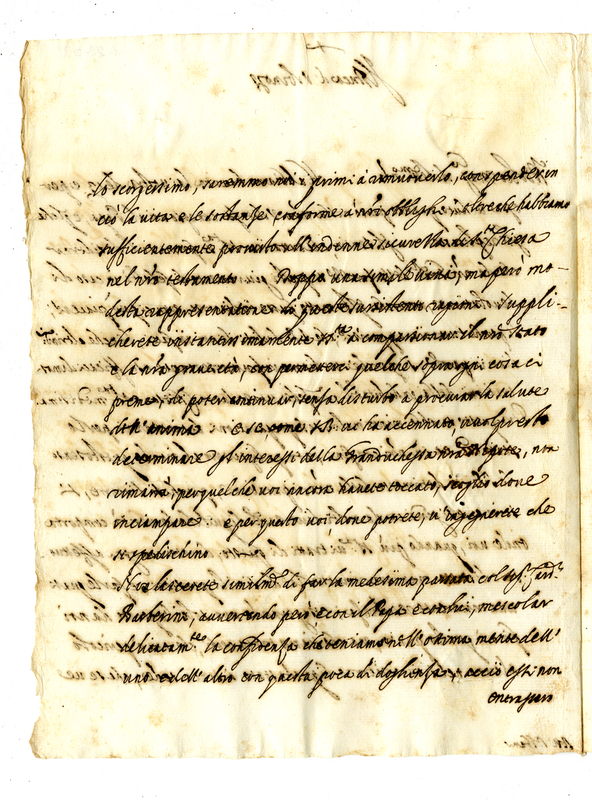 lo scorgessimo, saremmo noi i primi à rimuoverlo, con spender in
ciò la vita e le sostanze conforme à nro obbligo oltre che habbiamo
sufficientemente provisto all'indenne sicurezza di S.ta Chiesa
nel nro testamento. Doppo una simile viva, mà però mo-
desta rappresentatione di queste sussistenti ragioni suppli-
cherete instantissimamente S. S.tà à compassionar il nro stato
e la nra grave età, con permetterci quel che sopra ogni cosa ci
preme, di poter continuar senza disturbo à procurar la salute
dell'anima: E se, come S. S. vi ha accennato, vuol presto
determinare gl'interessi della Granduchessa nra Nepote, non
rimarrà, per quel che voi ancora havete toccato, scoglio dove
inciampare e per questo voi dove potrete, v'ingegnerete che
si spedischino.
Non lascerete similm.te di far la medesima passata col Sig.r Card.l
Barberini, avvertendo però e con il Papa e con lui, mescolar
delicatam.te la confidenza che teniamo nell'ottima mente dell'
uno e dell'altro con questa poca di doglienza, acciò essi non